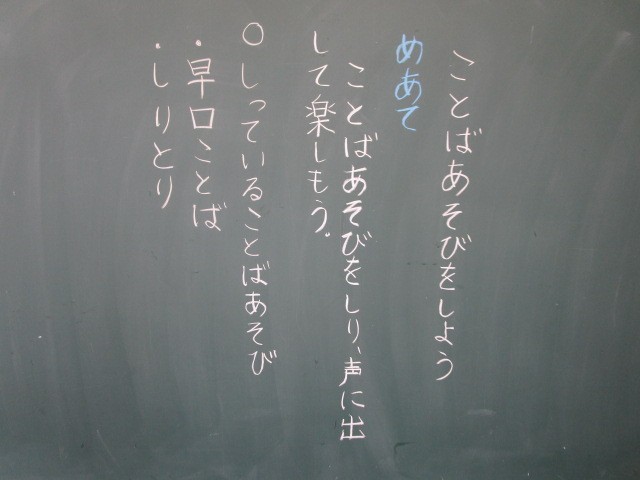 ことばあそびをしよう
めあて
ことばあそびをしり、声に出
して楽しもう。
○しっていることばあそび
・早口ことば
・しりとり